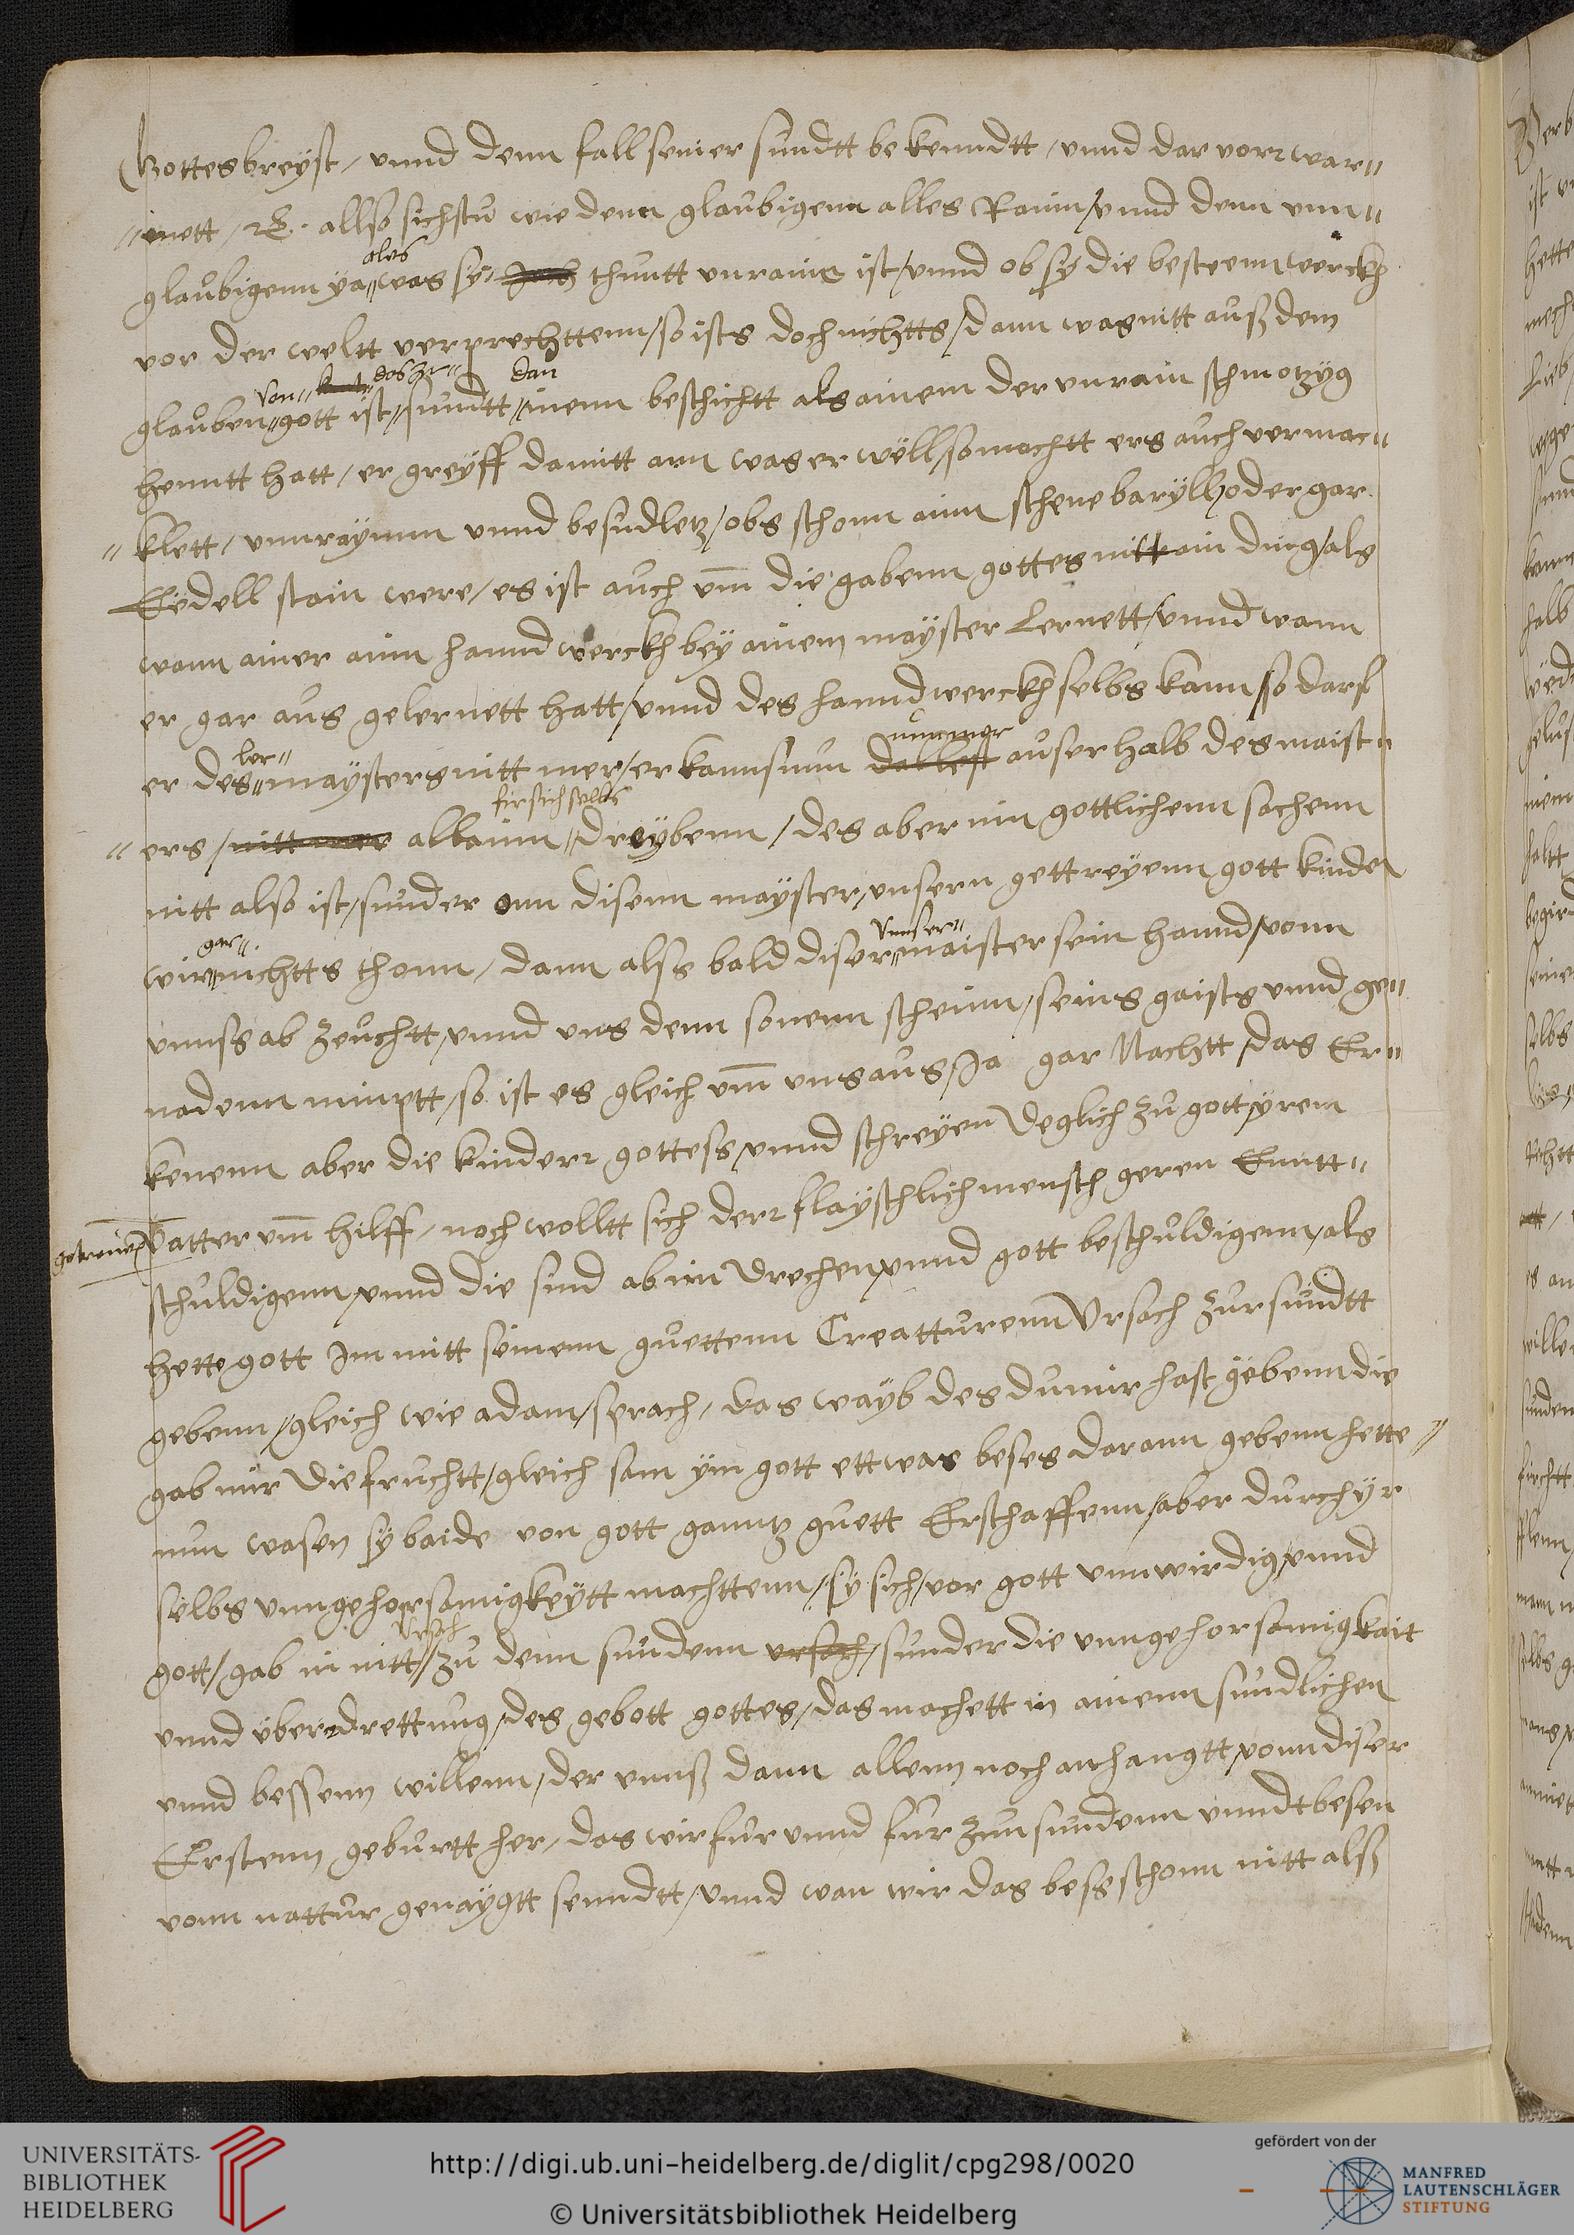 Gottes breyst / vnnd denn fall seiner sundtt bekenndtt / vnnd dar vorr war"
"nnett / ꝛc. allso sichstu wie denn glaubigenn alles Rainn / vnnd denn vnn"
ales
glaubigenn ya "was sy" thuntt vnraing ist / vnnd ob sy die bestenn werckh
vor der weltt verprechttenn / so ists doch nichtts / dann was nitt auß dem
von" das zu" dan
glauben" gott ist" sundtt "inenn beschichtt als ainem der vnrain schmotzyg
henntt hatt / er greyff damitt ann was er wöll / so machtt ers auch vermac"
"klett / vnnraynnn vnnd besudletz / obs schonn ainn schene barylh oder gar
Eedell stain were / es ist auch vm̄ die gabenn gottes nitt ain ding / als
wann ainer ainn hanndwerckh bey ainem mayster Lernett / vnnd wann
er gar aus gelernett hatt / vnnd des hanndwerckh selbs kann / so darf
ler" nummer
er des "maysters nitt mer / er kanns nun ausserhalb des maist"
fir sich selbs
"ers / nitt mer allainn "dreybenn / des aber inn gottlichenn sachenn
nitt also ist / sunder onn disenn mayster / vnsern gettreyenn gott kinden
gar" vnnser"
wir "nichtts thonn / dann alss bald diser "maister sein hannd / vonn
vnnss ab zeuchtt / vnnd vns denn sonenn scheinn / seins gaists vnnd ge"
nadenn nimptt / so ist es gleich vm̄ vns aus / Ja gar Nachtt / das Er"
kenenn aber die kinderr gottess / vnnd schreyen deglich zu gott yrem
getreuen Vatter vm̄ hilff / noch wolltt sich derr flayschlich mensch geren Enntt"
schuldigenn / vnnd die sind ab im drechen / vnnd gott beschuldigenn / als
hette gott Im mitt seinenn guettenn Creatturenn Vrsach zur sundtt
gebenn / gleich wie adam / sprach / das wayb des du mir hast gebenn die
gab mir die fruchtt / gleich sam ym gott ettwas beses darann gebenn hette
nun wasen sy baide von gott ganntz guett Erschaffenn / aber durch yr
selbs vnngehorsamigkeytt machttenn / sy sich / vor gott vnnwirdig / vnnd
vrsach
gott / gab in nitt "zu denn sundenn vrsach / sunder die vnngehorsamigkait
vnnd vberdrettung / des gebott gottes / das machett in ainenn sundlichen
vnnd bessenn willenn / der vnnß dann allenn noch anhangtt / vonn diser
Erstenn geburtt her / das wir fur vnnd fur zun sundenn vnndt besen
vonn nattur genaygtt senndtt / vnnd wan wir das bess schonn nitt alß
UNIVERSITÄTS-
BIBLIOTHEK
HEIDELBERG
http://digi.ub.uni-heidelberg.de/diglit/cpg298/0020
© Universitätsbibliothek Heidelberg
gefördert von der
MANFRED
LAUTENSCHLÄGER
STIFTUNG